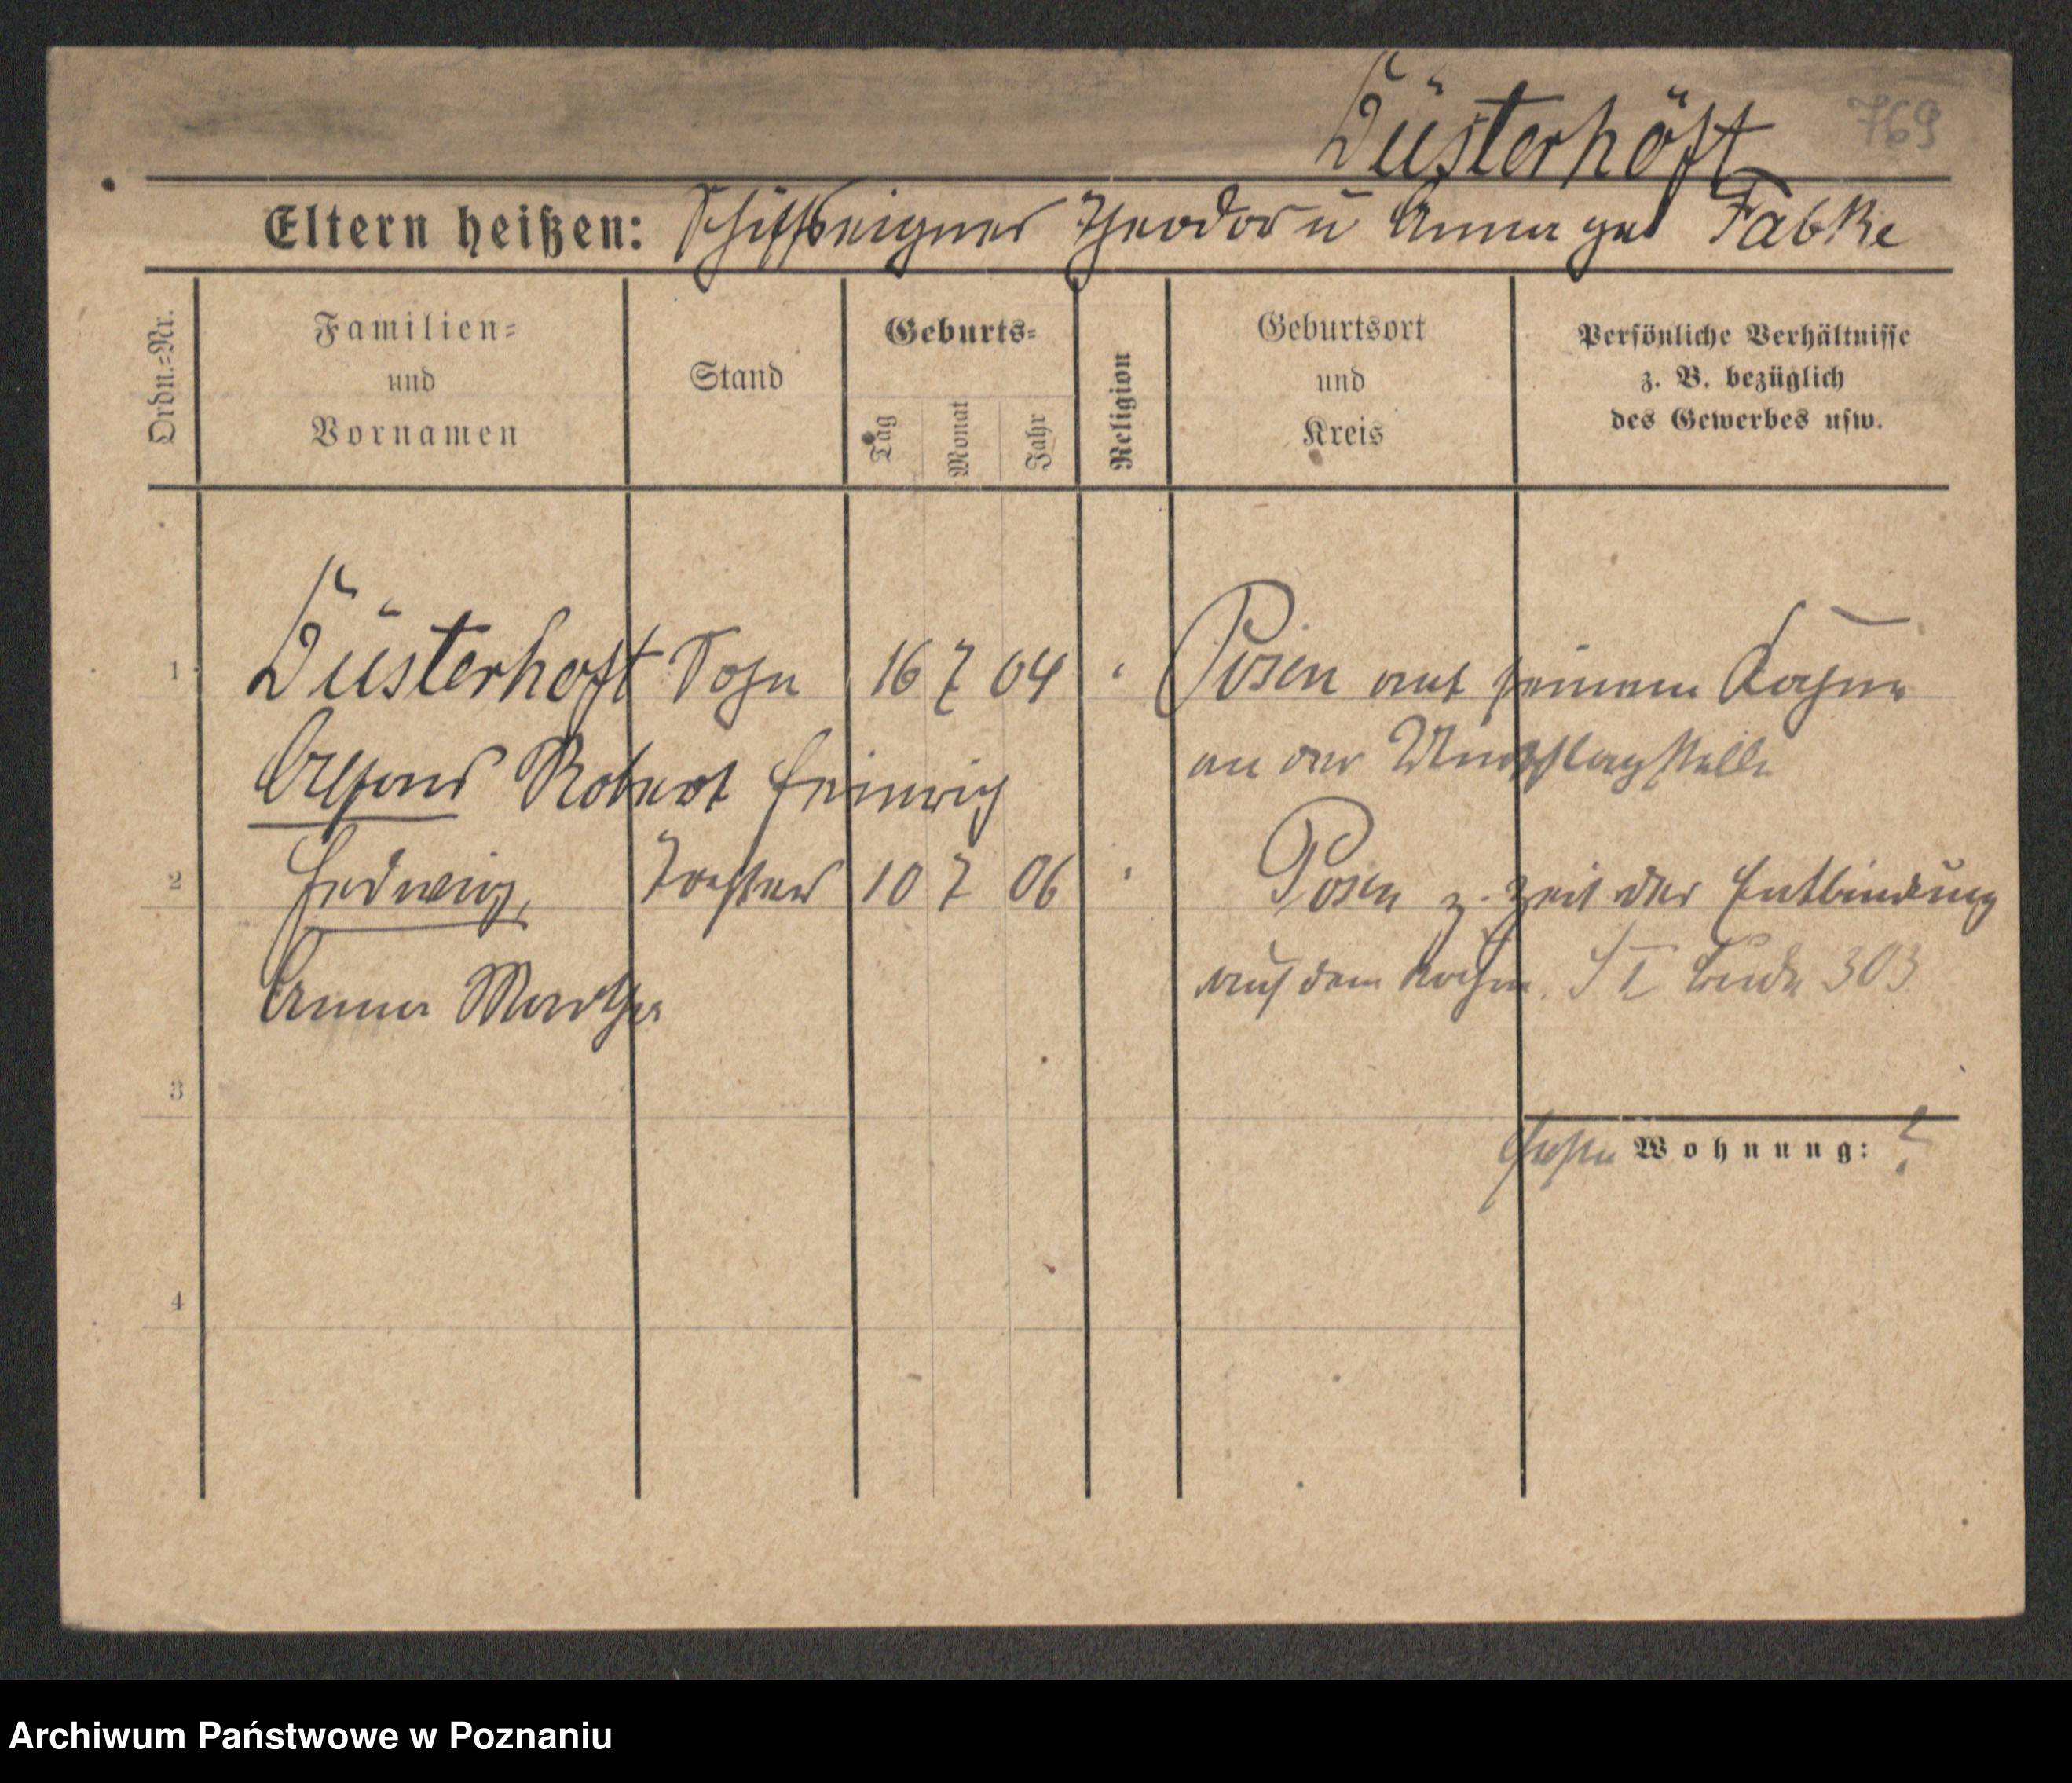 Düsterhöft 769
Eltern heißen: Schiffseigner Theodor u Anna geb Fabke
Ordn.-Nr.
Familien-
und
Vornamen
Stand
Geburts-
Tag
Monat
Jahr
Religion
Geburtsort
und
Kreis
Persönliche Verhältnisse
z. B. bezüglich
des Gewerbes usw.
1 Düsterhoft Sohn 16 7 04 Posen auf seinem Kahne
Alfons Robert Heinrich an der Umschlagstelle
2 Hedwig, Tochter 10 7 06 Posen z. Zeit der Entbindung
Anna Martha auf dem Kahn. S I 303
3
Wohnung: ?
4
Archiwum Państwowe w Poznaniu